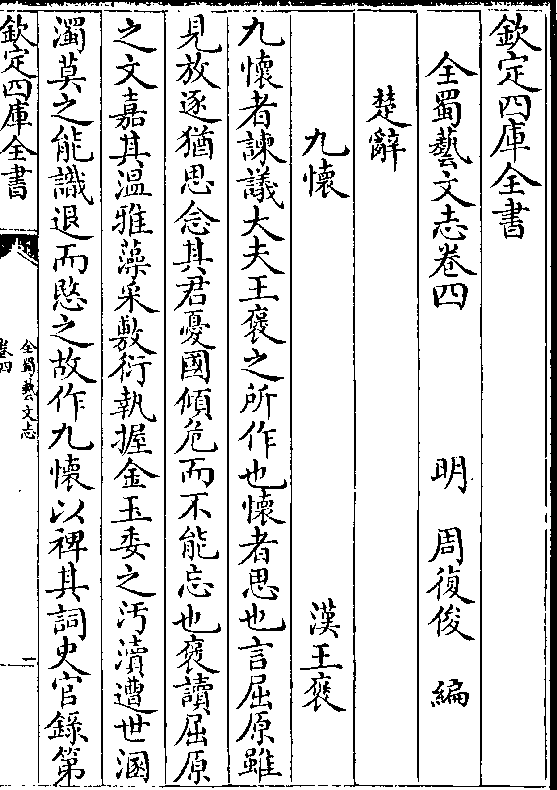 欽定四庫全書
全蜀藝文志卷四
明 周復俊 編
楚辭
九懷
漢王褒
九懷者諫議大夫王褒之所作也懷者思也言屈原雖
見放逐猶思念其君憂國傾危而不能忘也褒讀屈原
之文嘉其溫雅藻采敷衍執握金玉委之汚瀆遭世溷
濁莫之能識退而愍之故作九懷以裨其詞史官錄第
欽定四庫全書
全蜀藝文志
卷四
一